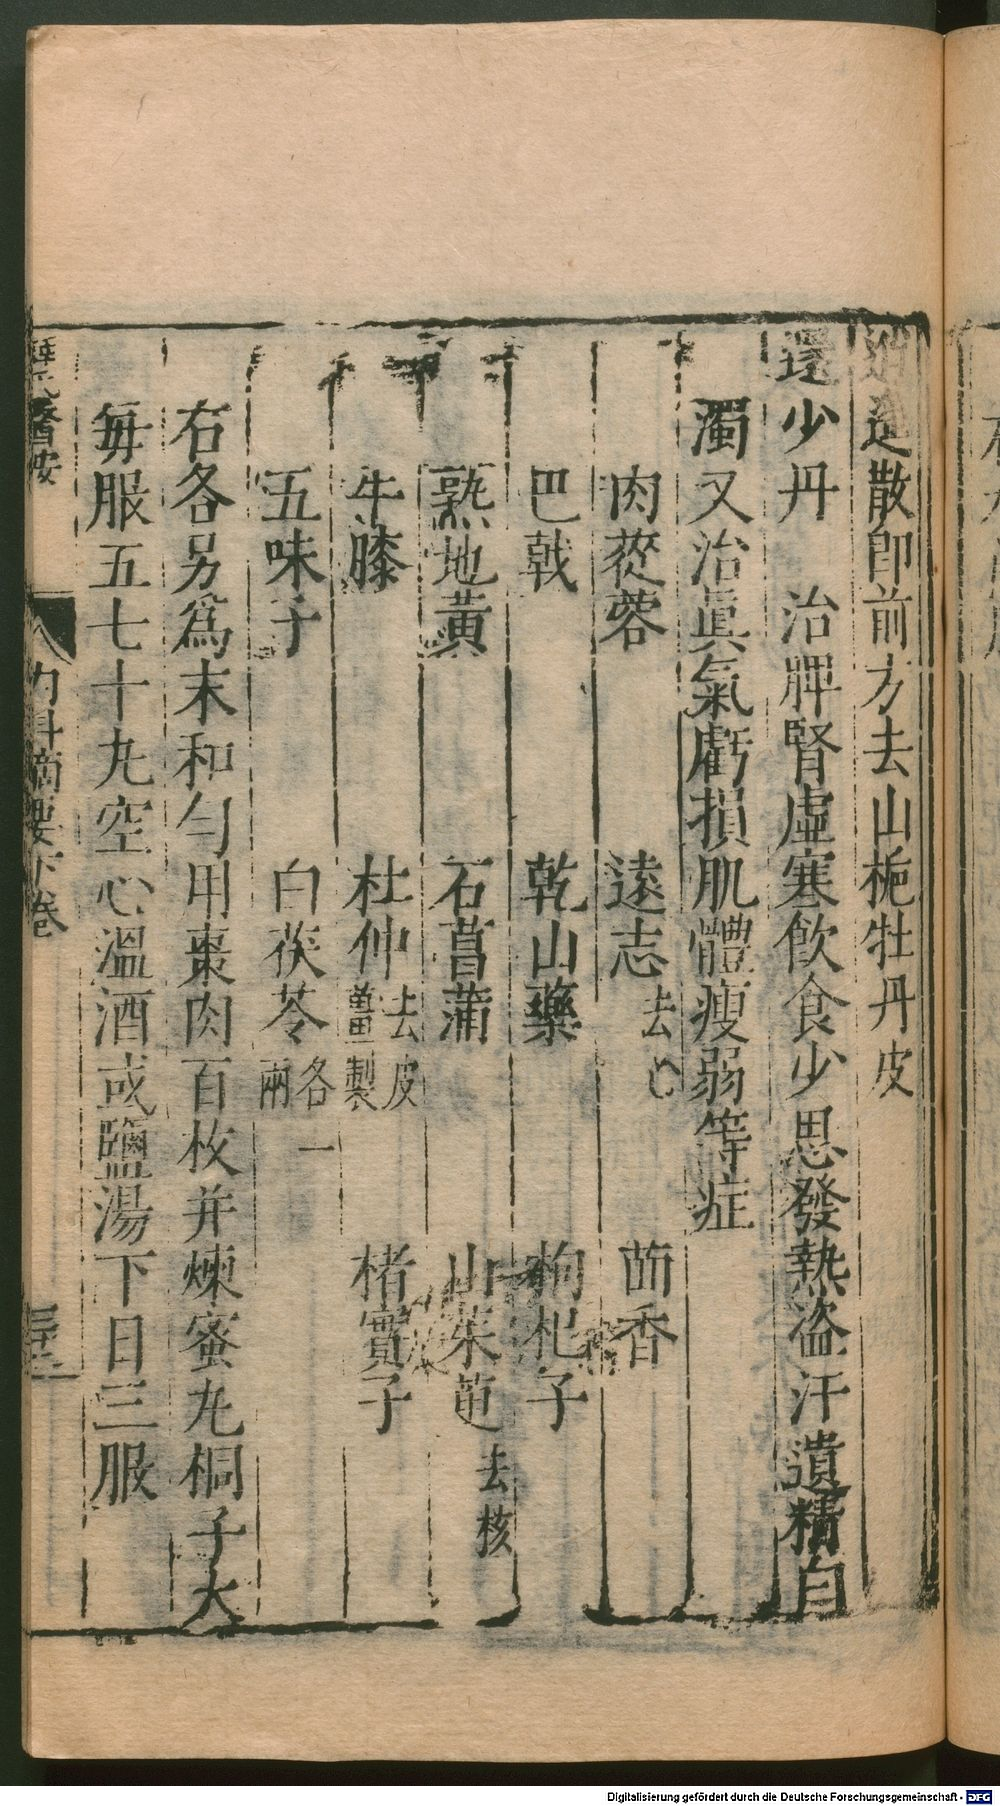 逍遙散卽前方去山梔牡丹皮
還少丹　治脾腎虛寒飲食少思發熱盜汗遺精白
濁又治眞氣虧損肌體瘦弱等症
肉蓯蓉　遠志去心　茴香
巴戟　乾山藥　枸杞子
熟地黃　石菖蒲　山茱萸去核
牛膝　杜仲去皮薑製　楮實子
五味子　白茯苓各一兩
右各另爲末和勻用棗肉百枚并煉蜜丸桐子大
每服五七十丸空心溫酒或鹽湯下日三服
薛氏醫按　內科摘要下卷
Digitalisierung gefördert durch die Deutsche Forschungsgemeinschaft - DFG